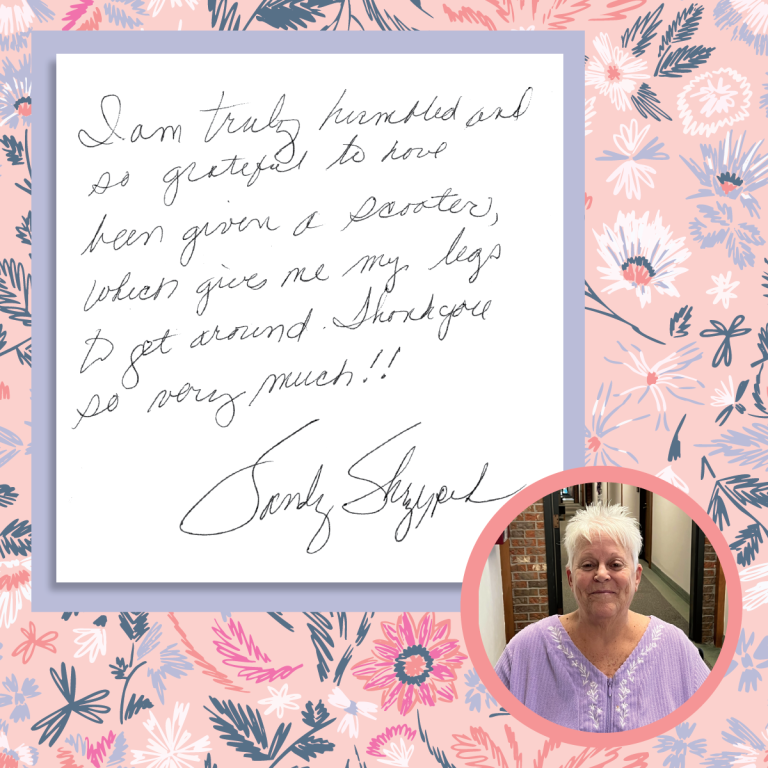 I am truly humbled and
so grateful to have
been given a scooter,
which gives me my legs
to get around. Thank you
so very much!!
Sandy